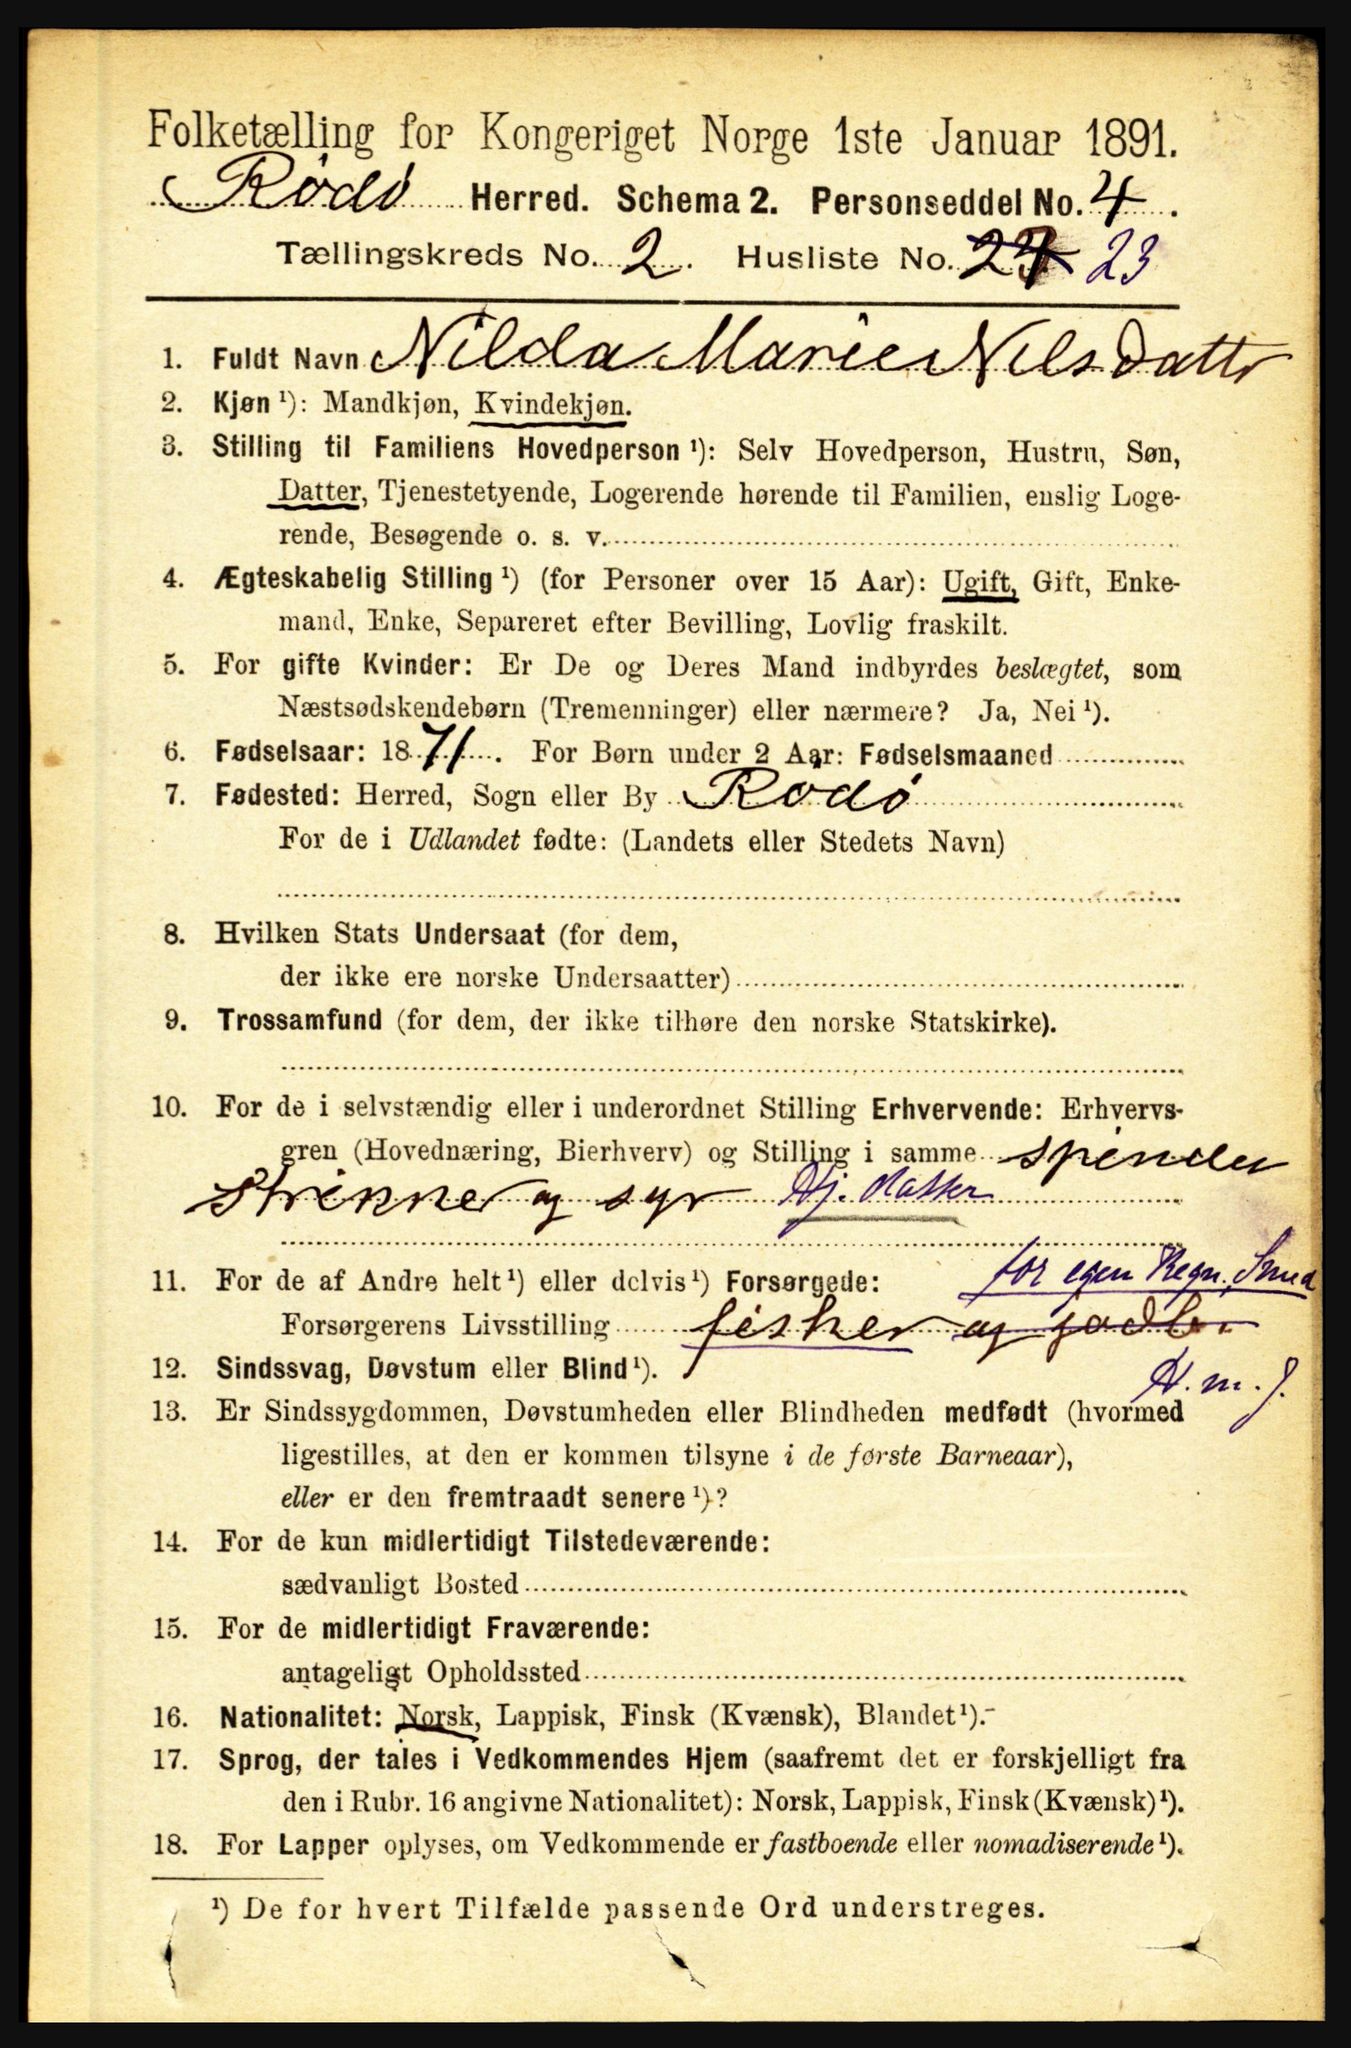 Folketælling for Kongeriget Norge 1ste Januar 1891.
Rødø Herred. Schema 2. Personseddel No. 4.
Tællingskreds No. 2. Husliste No. 23
1. Fuldt Navn Nilda Marie Nilsdattr
2. Kjøn ¹): Mandkjøn, Kvindekjøn.
3. Stilling til Familiens Hovedperson ¹): Selv Hovedperson, Hustru, Søn,
Datter, Tjenestetyende, Logerende hørende til Familien, enslig Loge-
rende, Besøgende o. s. v.
4. Ægteskabelig Stilling ¹) (for Personer over 15 Aar): Ugift, Gift, Enke-
mand, Enke, Separeret efter Bevilling, Lovlig fraskilt.
5. For gifte Kvinder: Er De og Deres Mand indbyrdes beslægtet, som
Næstsødskendebørn (Tremenninger) eller nærmere? Ja, Nei ¹).
6. Fødselsaar: 1871. For Børn under 2 Aar: Fødselsmaaned
7. Fødested: Herred, Sogn eller By Rødø
For de i Udlandet fødte: (Landets eller Stedets Navn)
8. Hvilken Stats Undersaat (for dem,
der ikke ere norske Undersaatter)
9. Trossamfund (for dem, der ikke tilhøre den norske Statskirke).
10. For de i selvstændig eller i underordnet Stilling Erhvervende: Erhvervs-
gren (Hovednæring, Bierhverv) og Stilling i samme spinder
strikker og syr Hj. datter
11. For de af Andre helt ¹) eller delvis ¹) Forsørgede: for egen Regn. Smed
Forsørgerens Livsstilling fisker og jordb.
12. Sindssvag, Døvstum eller Blind ¹). H. m. J.
13. Er Sindssygdommen, Døvstumheden eller Blindheden medfødt (hvormed
ligestilles, at den er kommen tilsyne i de første Barneaar),
eller er den fremtraadt senere ¹)?
14. For de kun midlertidigt Tilstedeværende:
sædvanligt Bosted
15. For de midlertidigt Fraværende:
antageligt Opholdssted
16. Nationalitet: Norsk, Lappisk, Finsk (Kvænsk), Blandet ¹).
17. Sprog, der tales i Vedkommendes Hjem (saafremt det er forskjelligt fra
den i Rubr. 16 angivne Nationalitet): Norsk, Lappisk, Finsk (Kvænsk) ¹).
18. For Lapper oplyses, om Vedkommende er fastboende eller nomadiserende ¹).
¹) De for hvert Tilfælde passende Ord understreges.